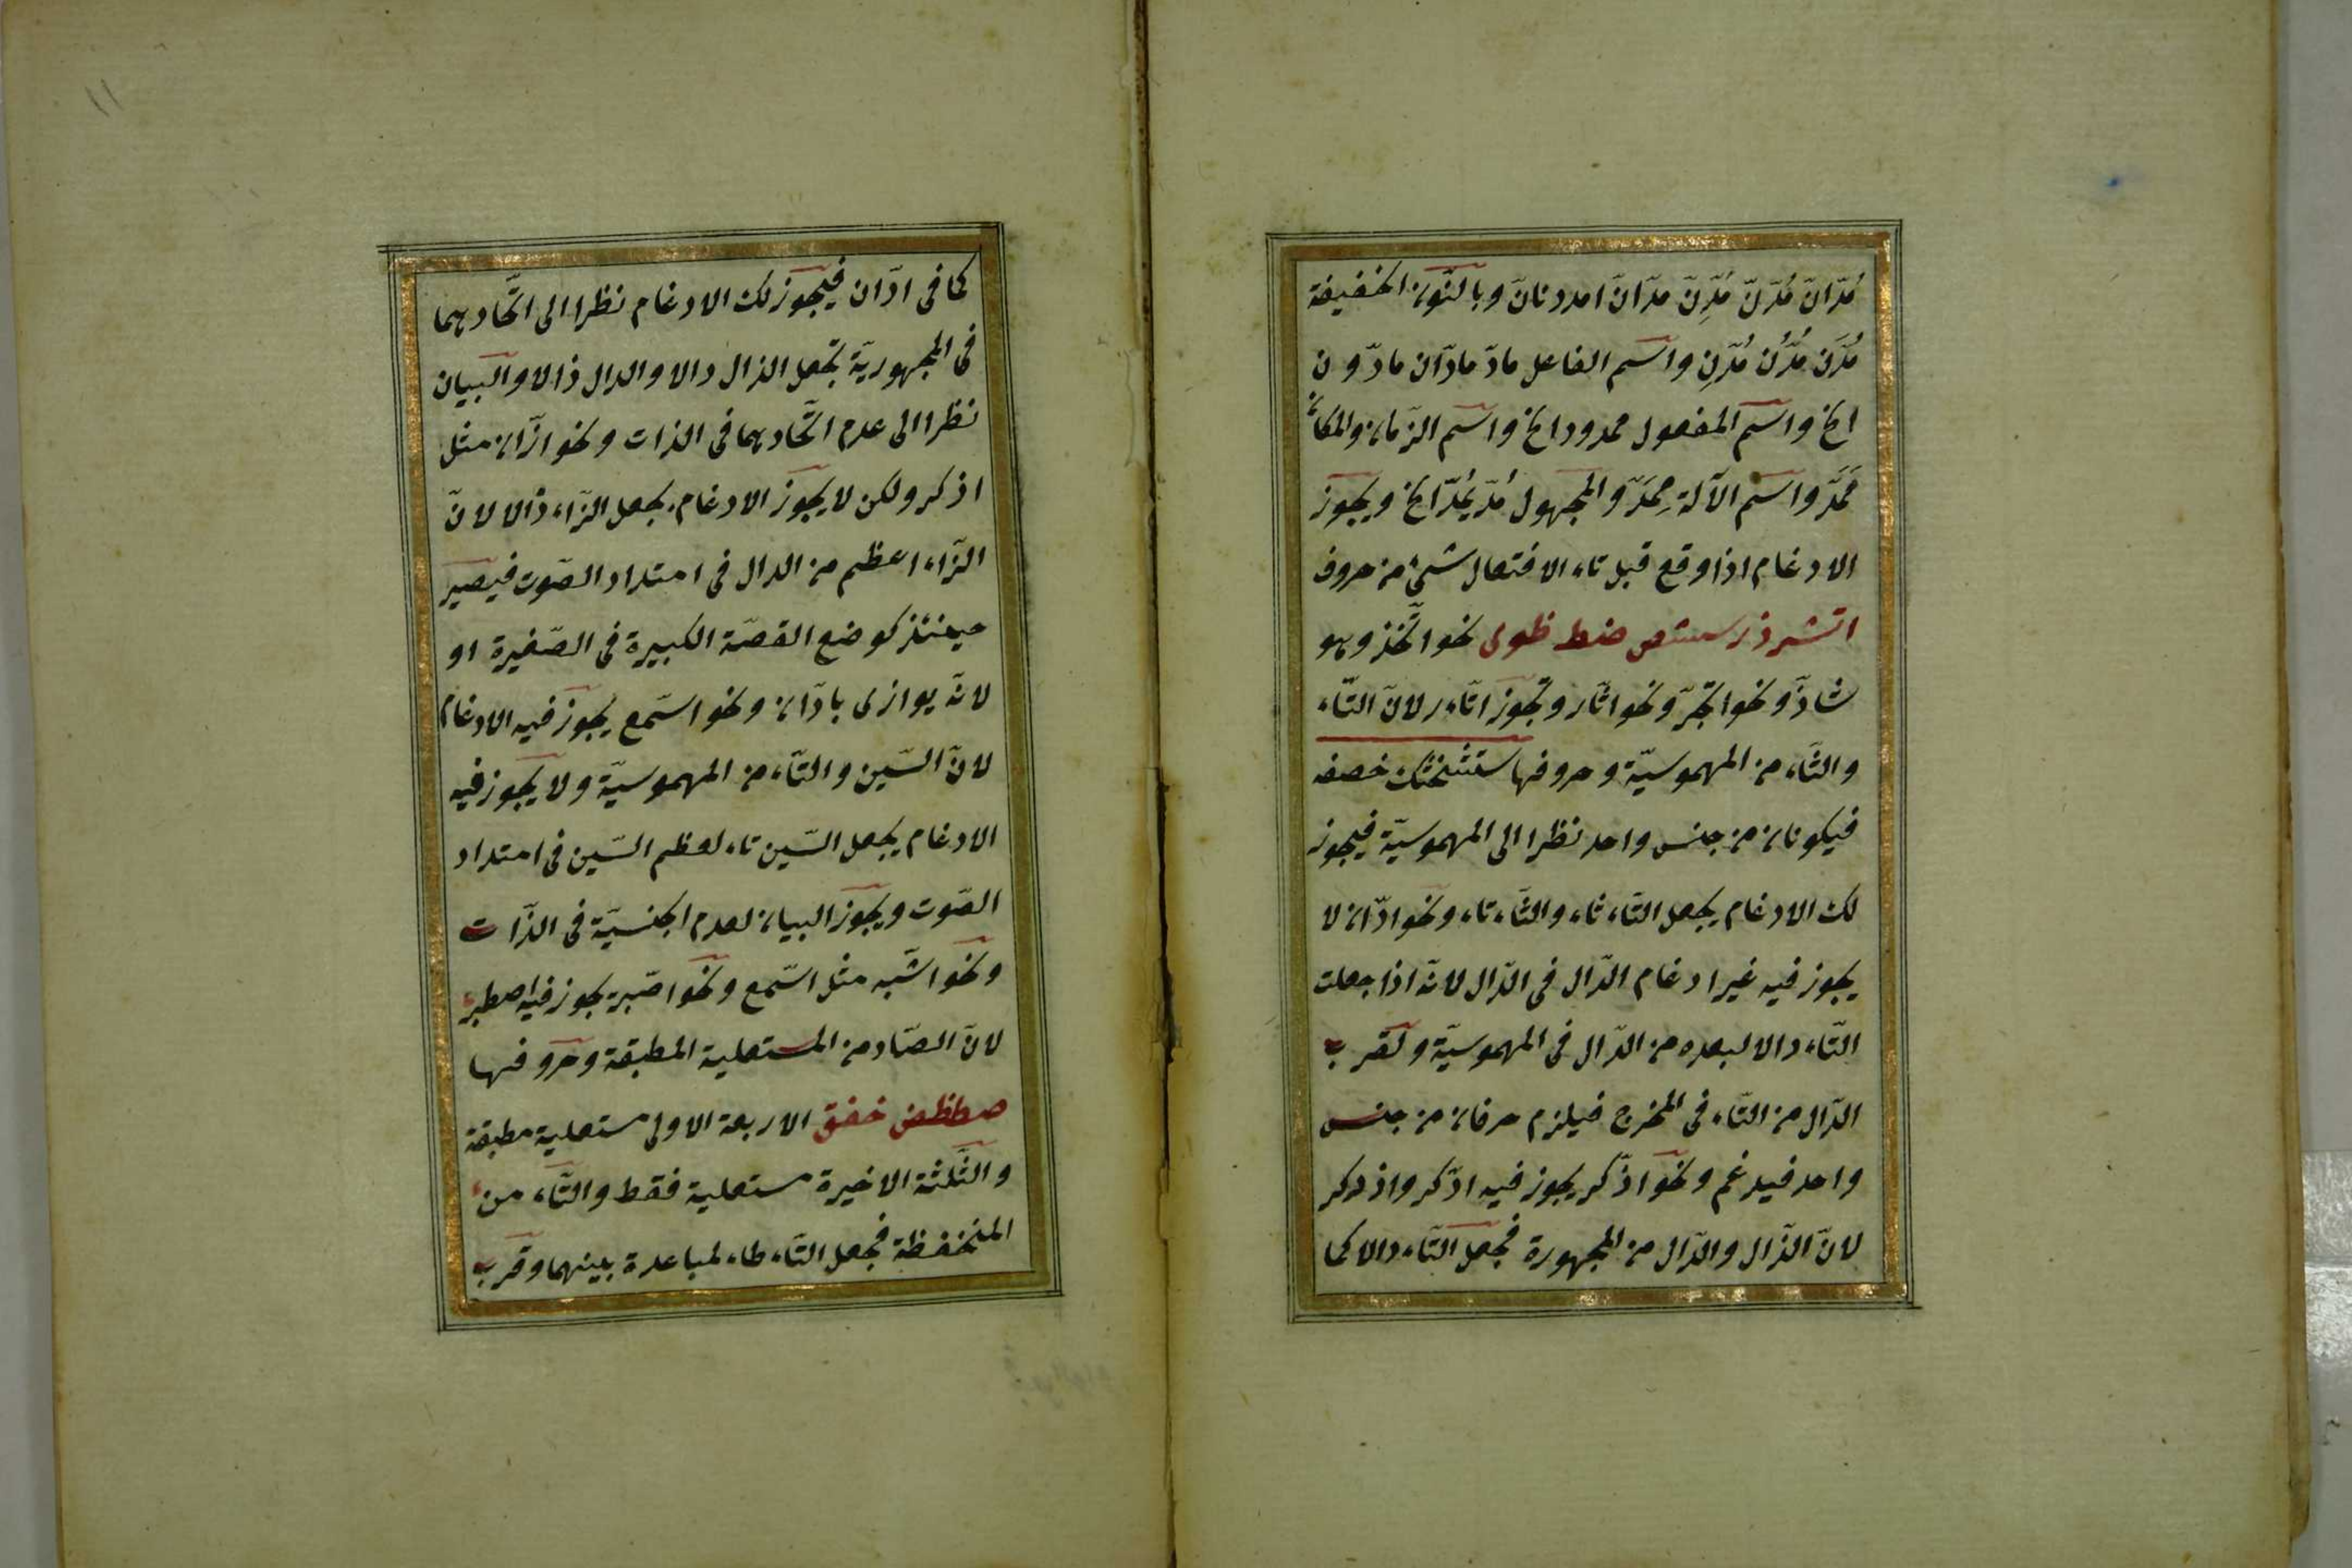 مُدّانّ مُدّنّ مُدِّنّ مدّانّ امددنانّ وبالنّون الخفيفة
مُدَّن مُدُّن مُدِّن واسم الفاعل مادّ مادّان مادّون
الخ واسم المفعول ممدود الخ واسم الزّمان والمكان
مَمَدَّ واسم الآلة مِمَدّ والمجهول مُدّ يُمَدّ الخ ويجوز
الادغام اذا وقع قبل تاء الافتعال شئ من حروف
اتثدذزسشصضطظوى نحو اتّخذ وهو
شاذّ ونحو اتّجر ونحو اثّار وتجوز اتّار لانّ التّاء
والثّاء من المهموسيّة وحروفها ستشحثك خصفه
فيكونان من جنس واحد نظرا الى المهموسيّة فيجوز
لك الادغام بجعل التّاء ثاء والثّاء تاء ونحو ادّان لا
يجوز فيه غير ادغام الدّال فى الدّال لانّه اذا جعلت
التّاء دالا لبعده من الدّال فى المهموسيّة ولقرب
الدّال من التّاء فى المخرج فيلزم حرفان من جنس
واحد فيدغم ونحو اذّكر يجوز فيه ادّكر واذدكر
لانّ الذّال والدّال من المجهورة فجعل التّاء دالا كما
كما فى ادّان فيجوز لك الادغام نظرا الى اتّحادهما
فى المجهوريّة بجعل الذال دالا والدال ذالا والبيان
نظرا الى عدم اتّحادهما فى الذات ونحو ازّان مثل
اذكر ولكن لا يجوز الادغام بجعل الزّاء دالا لانّ
الزّاء اعظم من الدال فى امتداد الصّوت فيصير
حينئذ كوضع القصّة الكبيرة فى الصّغيرة او
لانّه يوازى بادّان ونحو اسّمع يجوز فيه الادغام
لانّ السّين والتّاء من المهموسيّة ولا يجوز فيه
الادغام بجعل السّين تاء لعظم السّين فى امتداد
الصّوت ويجوز البيان لعدم الجنسيّة فى الذّات
ونحو اشّبه مثل اسّمع ونحو اصّبر يجوز فيه اصطبر
لانّ الصّاد من المستعلية المطبقة وحروفها
صطظض خغق الاربعة الاولى مستعلية مطبقة
والثّلثة الاخيرة مستعلية فقط والتّاء من
المنخفظة فجعل التّاء طاء لمباعدة بينهما وقرب
١١